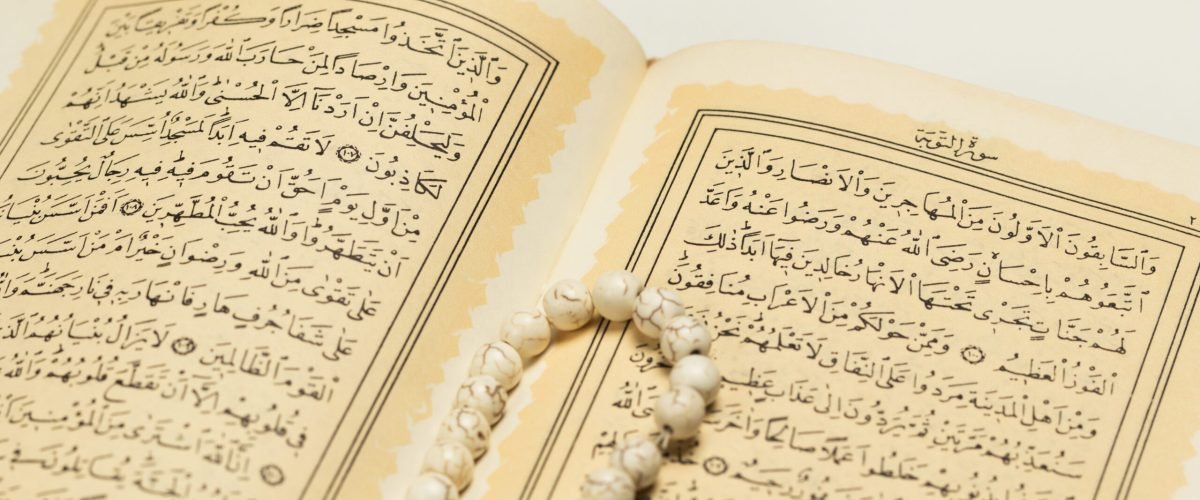 سورة التوبة
وَالسَّابِقُونَ الْاَوَّلُونَ مِنَ الْمُهَاجِرِينَ وَالْاَنْصَارِ وَالَّذِينَ
اتَّبَعُوهُمْ بِاِحْسَانٍ رَضِىَ اللّٰهُ عَنْهُمْ وَرَضُوا عَنْهُ وَاَعَدَّ
لَهُمْ جَنَّاتٍ تَجْرِى تَحْتَهَا الْاَنْهَارُ خَالِدِينَ فِيهَا اَبَدًا ذٰلِكَ
الْفَوْزُ الْعَظِيمُ ١٠٠ وَمِمَّنْ حَوْلَكُمْ مِنَ الْاَعْرَابِ مُنَافِقُونَ
وَمِنْ اَهْلِ الْمَدِينَةِ مَرَدُوا عَلَى النِّفَاقِ لَا تَعْلَمُهُمْ نَحْنُ
سَنُعَذِّبُهُمْ مَرَّتَيْنِ ثُمَّ يُرَدُّونَ اِلٰى عَذَابٍ عَظِيمٍ
خَلَطُوا عَمَلًا صَالِحًا وَاٰخَرَ اللّٰهُ
رَحِيمٌ
وَالَّذِينَ اتَّخَذُوا مَسْجِدًا ضِرَارًا وَكُفْرًا وَتَفْرِيقًا بَيْنَ
الْمُؤْمِنِينَ وَاِرْصَادًا لِمَنْ حَارَبَ اللّٰهَ وَرَسُولَهُ مِنْ قَبْلُ
وَلَيَحْلِفُنَّ اِنْ اَرَدْنَا اِلَّا الْحُسْنٰى وَاللّٰهُ يَشْهَدُ اِنَّهُمْ
لَكَاذِبُونَ ١٠٧ لَا تَقُمْ فِيهِ اَبَدًا لَمَسْجِدٌ اُسِّسَ عَلَى التَّقْوٰى
مِنْ اَوَّلِ يَوْمٍ اَحَقُّ اَنْ تَقُومَ فِيهِ فِيهِ رِجَالٌ يُحِبُّونَ
اَنْ يَتَطَهَّرُوا وَاللّٰهُ يُحِبُّ الْمُطَّهِّرِينَ ١٠٨ اَفَمَنْ اَسَّسَ بُنْيَانَهُ
عَلٰى تَقْوٰى مِنَ اللّٰهِ وَرِضْوَانٍ خَيْرٌ اَمْ مَنْ اَسَّسَ
عَلٰى شَفَا جُرُفٍ هَارٍ فَانْهَارَ بِهِ فِى نَارِ جَهَنَّمَ
الْقَوْمَ الظَّالِمِينَ ١٠٩ لَا يَزَالُ بُنْيَانُهُمُ
فِى قُلُوبِهِمْ اِلَّا اَنْ تَقَطَّعَ قُلُوبُهُمْ وَاللّٰهُ
اِنَّ اللّٰهَ اشْتَرٰى مِنَ الْمُؤْمِنِينَ
الْجَنَّةَ يُقَاتِلُونَ فِى